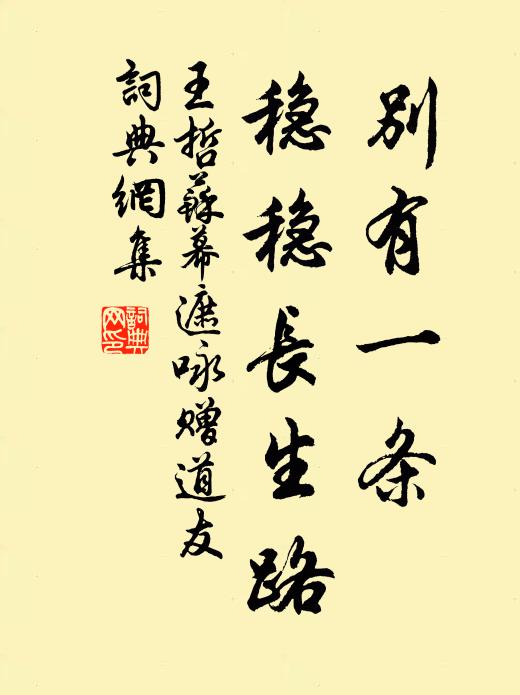 别有一条
稳稳長生路
王哲蘇幕遮咏赠道友
詞典網集
詞典网印